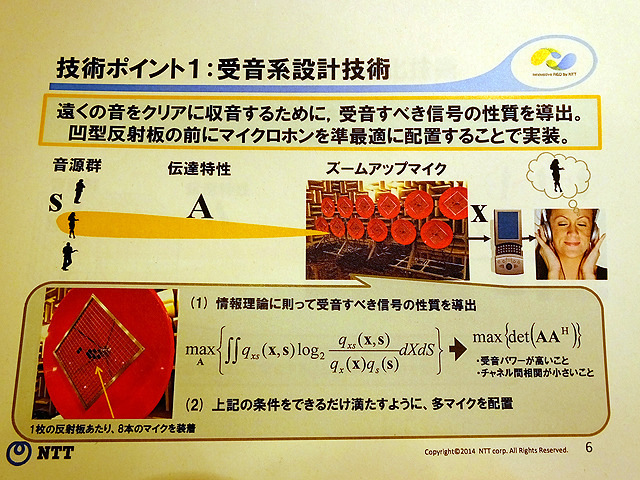 技術ポイント1:受音系設計技術
Innovative R&D by NTT
遠くの音をクリアに収音するために,受音すべき信号の性質を導出。
凹型反射板の前にマイクロホンを準最適に配置することで実装。
音源群
伝達特性
ズームアップマイク
S
A
X
(1) 情報理論に則って受音すべき信号の性質を導出
max_A {∬ q_xs(x,s) log_2 q_xs(x,s) / q_x(x)q_s(s) dXdS} → max{det(AA^H)}
・受音パワーが高いこと
・チャネル間相関が小さいこと
(2) 上記の条件をできるだけ満たすように、多マイクを配置
1枚の反射板あたり、8本のマイクを装着
NTT
Copyright©2014 NTT corp. All Rights Reserved.
6